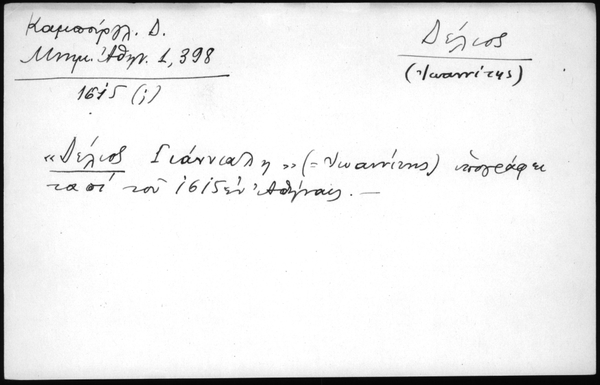 Καμπούργλ. Δ.
Μνημ. Ἀθην. 1, 398
1615 (;)
Δέλιος
(Ἰωαννίτης)
«Δέλιος Γιάννιαλη» (= Ἰωαννίτης) ὑπογράφει
τοῦ 1615 ἐν Ἀθήναις. —